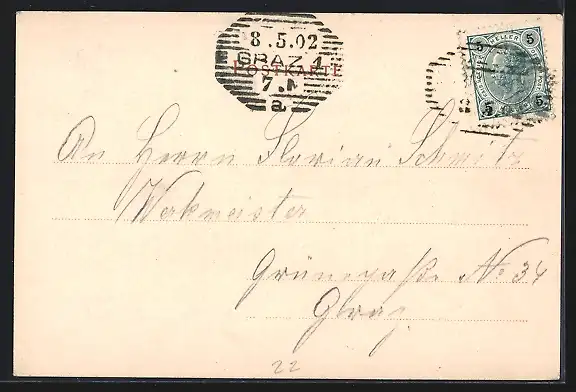 8.5.02
GRAZ 1
POSTKARTE
7.N
a
5 HELLER 5
5 5
An Herrn Florian Schmetz
Werkmeister
Grünegaße No 34
Graz
22